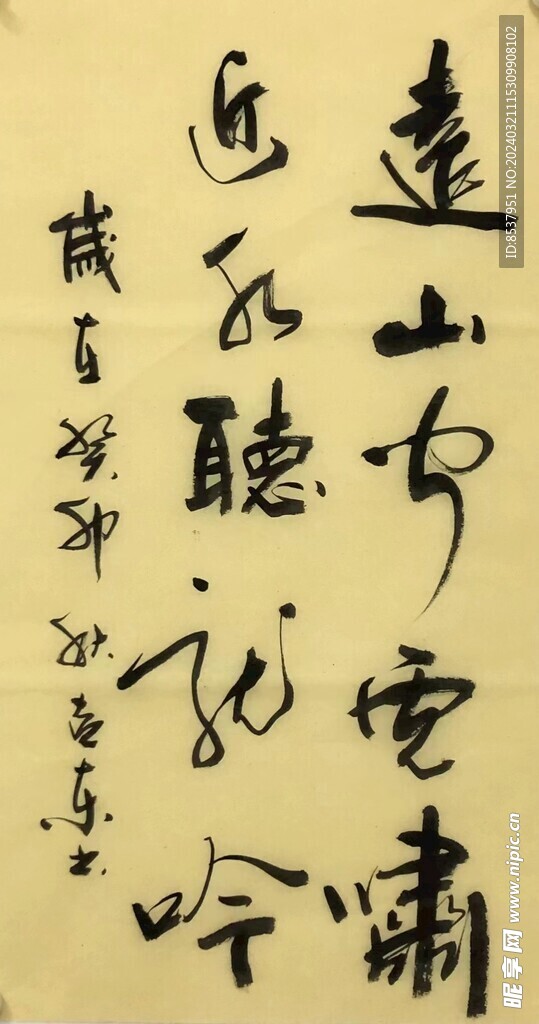 遠山聞虎嘯
近水聽龍吟
歲在癸卯秋喜東书
ID:8537951 NO:20240321115309908102
昵享网 www.nipic.cn